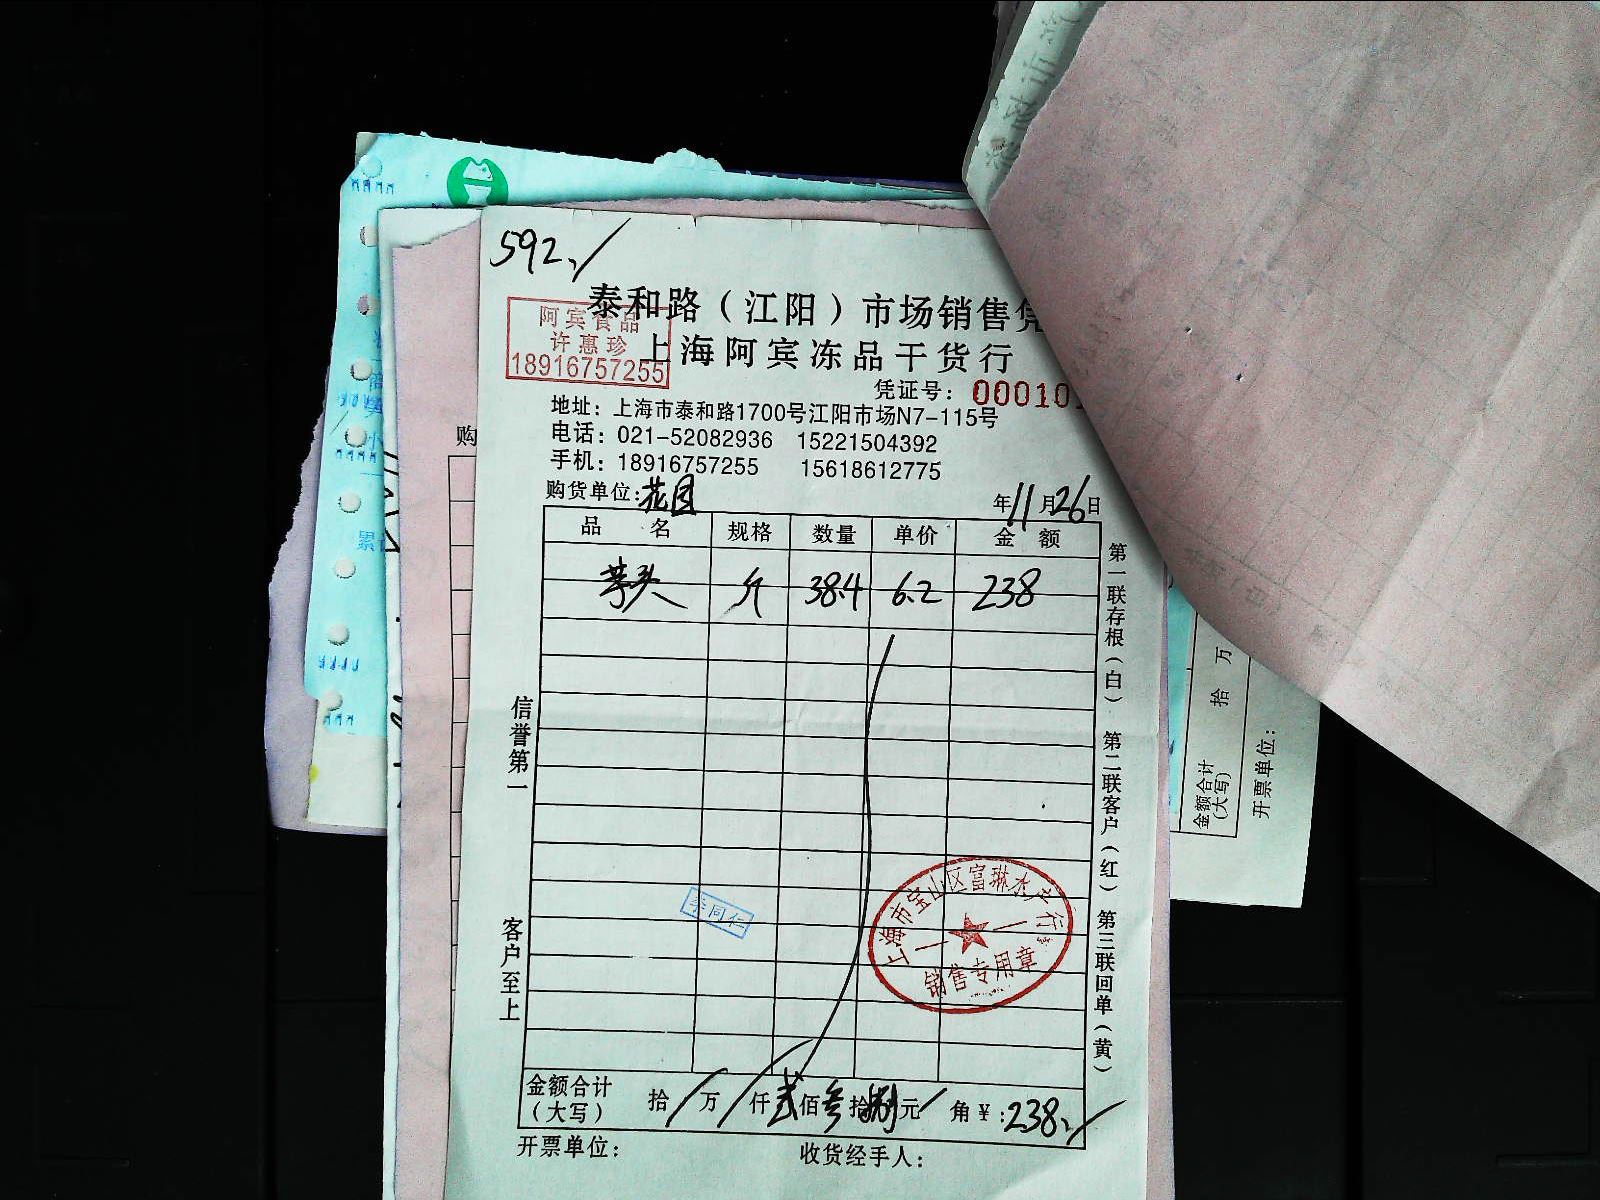 592
泰和路（江阳）市场销售凭
阿宾食品
许惠珍
18916757255
上海阿宾冻品干货行
凭证号：000101
地址：上海市泰和路1700号江阳市场N7-115号
电话：021-52082936 15221504392
手机：18916757255 15618612775
购货单位：花园 年11月26日
品名 规格 数量 单价 金额
芋头 斤 38.4 6.2 238
第一联存根（白） 第二联客户（红） 第三联回单（黄）
信誉第一
客户至上
李同仁
上海市宝山区富琳水产行
销售专用章
金额合计（大写） 拾 万 仟 贰 佰 叁 拾 捌 元 角 ¥：238
开票单位： 收货经手人：
购
累
万
拾
金额合计
（大写）
开票单位：